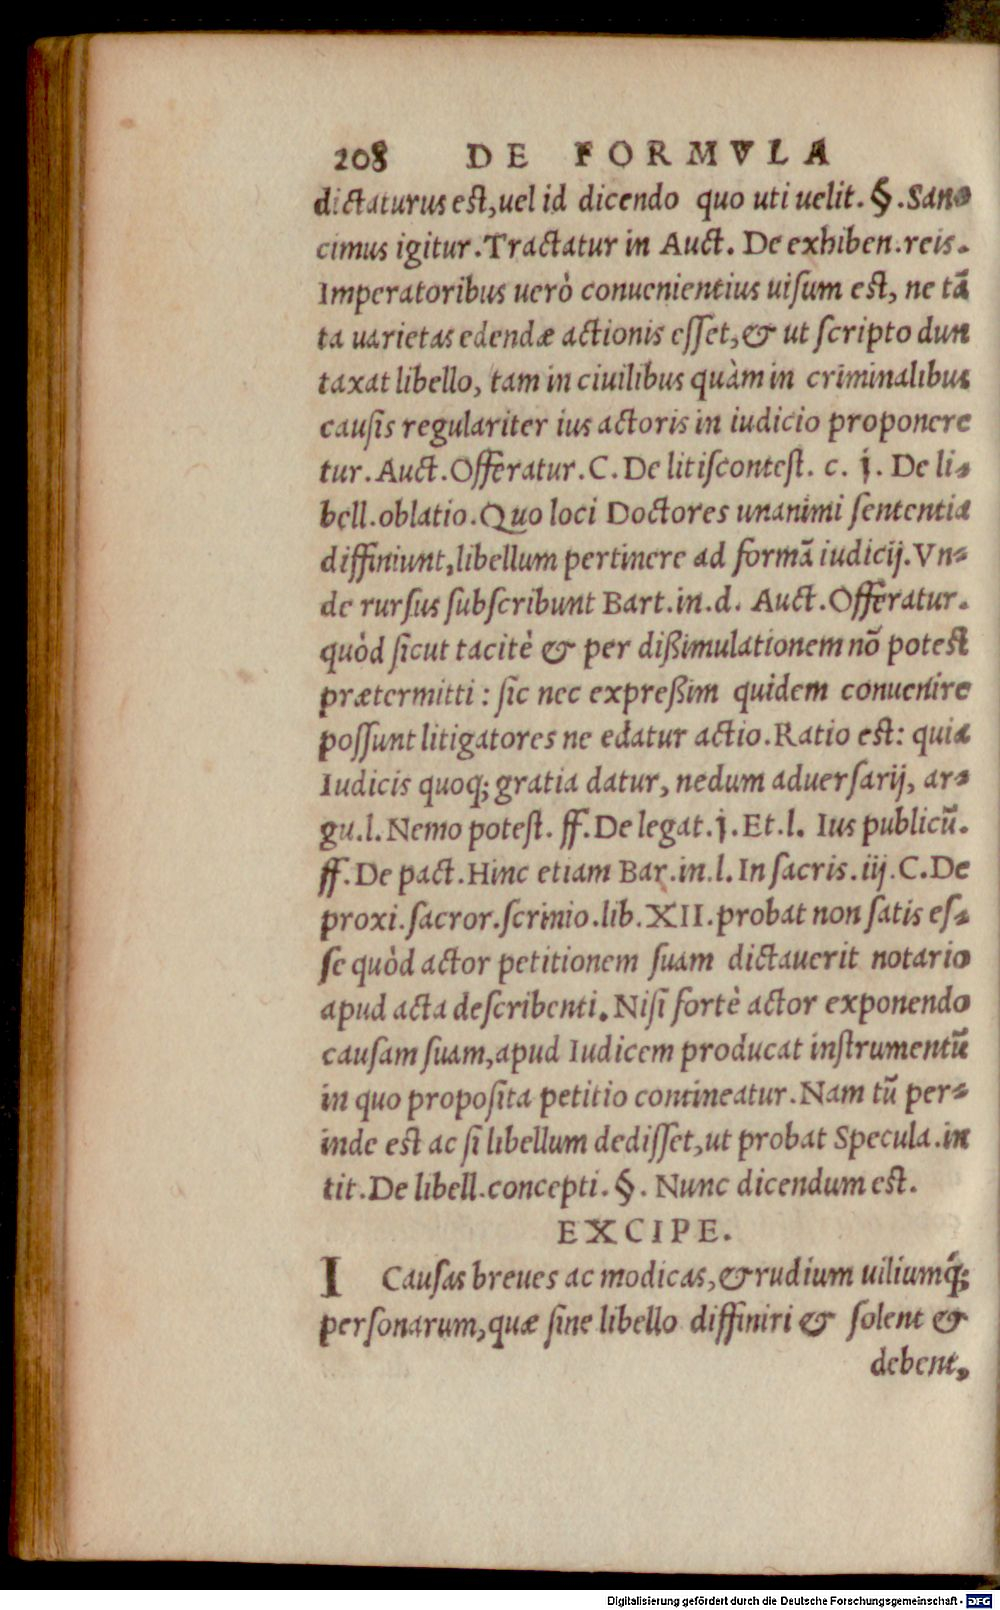 208 DE FORMVLA
dictaturus est, uel id dicendo quo uti uelit. §. Sano
cimus igitur. Tractatur in Auct. De exhiben. reis.
Imperatoribus uerò conuenientius uisum est, ne tā
ta uarietas edendæ actionis esset, & ut scripto dun
taxat libello, tam in ciuilibus quàm in criminalibus
causis regulariter ius actoris in iudicio proponere
tur. Auct. Offeratur. C. De litiscontest. c. j. De li-
bell. oblatio. Quo loci Doctores unanimi sententia
diffiniunt, libellum pertinere ad formā iudicij. Vn-
de rursus subscribunt Bart. in. d. Auct. Offeratur.
quòd sicut tacitè & per dißimulationem nō potest
prætermitti: sic nec expreßim quidem conuenire
possunt litigatores ne edatur actio. Ratio est: quia
Iudicis quoq; gratia datur, nedum aduersarij, ar-
gu. l. Nemo potest. ff. De legat. j. Et. l. Ius publicū.
ff. De pact. Hinc etiam Bar. in. l. In sacris. iij. C. De
proxi. sacror. scrinio. lib. XII. probat non satis es-
se quòd actor petitionem suam dictauerit notario
apud acta describenti. Nisi fortè actor exponendo
causam suam, apud Iudicem producat instrumentū
in quo proposita petitio contineatur. Nam tū per-
inde est ac si libellum dedisset, ut probat Specula. in
tit. De libell. concepti. §. Nunc dicendum est.
EXCIPE.
I Causas breues ac modicas, & rudium uiliumq́;
personarum, quæ sine libello diffiniri & solent &
debent,
Digitalisierung gefördert durch die Deutsche Forschungsgemeinschaft - DFG